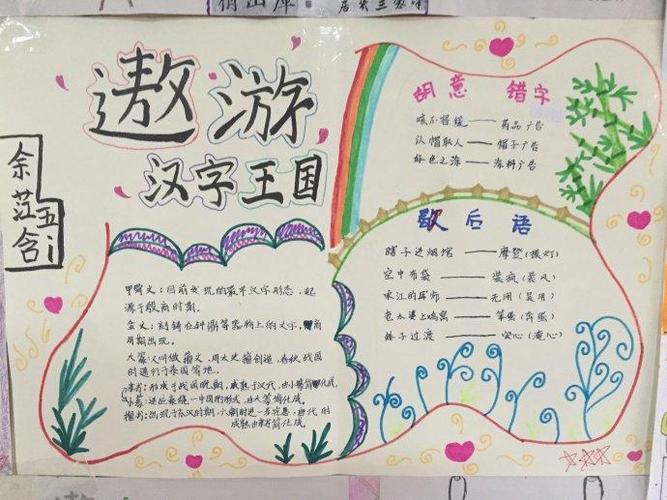 遨游
汉字王国
余
含
五
甲骨文：目前发现的最早汉字形态，起
源于殷商时期。
金文：刻铸在钟鼎等器物上的文字，商
周期出现。
大篆又叫做籀文，周太史籀创造，春秋战国
时通行于秦国等地。
隶书：形成于战国晚期，成熟于汉代，由小篆简化成
小篆：统一中国的形式，由大篆简化成
楷书：出现于东汉时期，六朝时进一步完善，唐代时
成熟由隶书简化成
胡意 错字
咳不容缓——药品广告
认帽取人——帽子广告
好色之涂——涂料广告
歇后语
瞎子进烟馆——摩登（摸灯）
空中布袋——装疯（装风）
江的军师——无用（吴用）
鸡窝——笨蛋
过渡——安心（淹心）